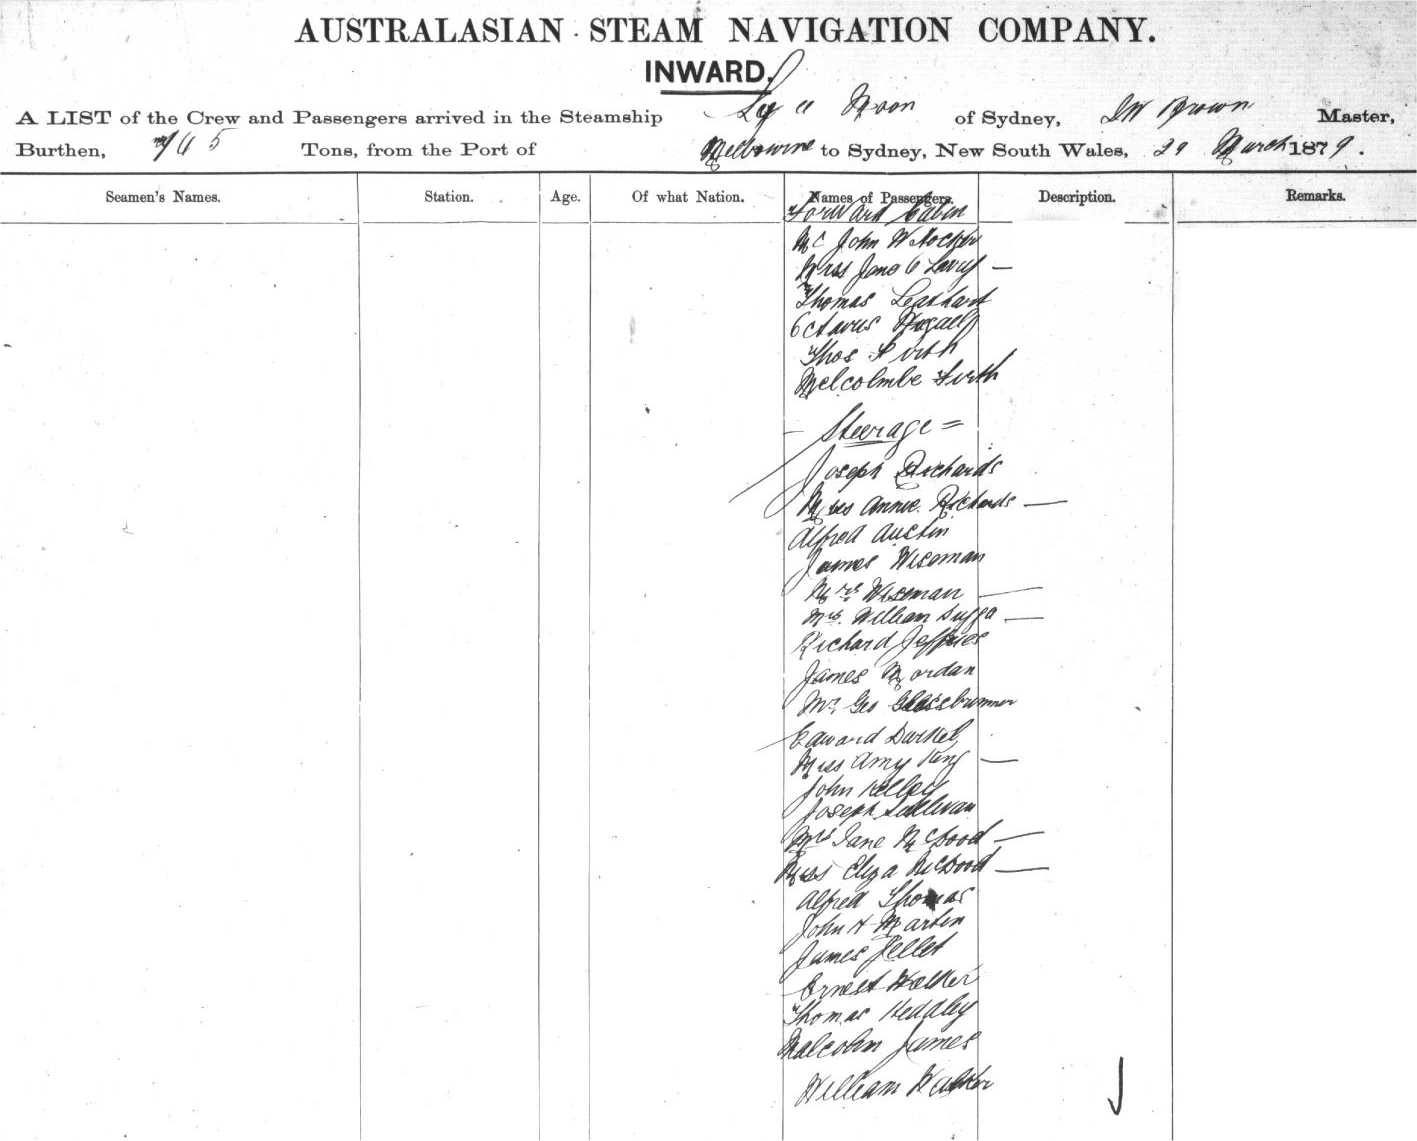 AUSTRALASIAN STEAM NAVIGATION COMPANY.
INWARD.
A LIST of the Crew and Passengers arrived in the Steamship Ly ee Moon of Sydney, Brown Master,
Burthen, Tons, from the Port of Melbourne to Sydney, New South Wales, 29 March 1879.
Seamen's Names. Station. Age. Of what Nation. Names of Passengers. Description. Remarks.
Forward Cabin
John
Miss Jane
Thomas Leathart
Octavus
Thos Firth
Melcolmbe Firth
Steerage =
Joseph Richards
Mrs Annie Richards —
Alfred Austin
James Wiseman
Mrs Wiseman —
Mrs. William Sugga —
Richard Jeffries
James Mordan
Mr Geo
Edward
Miss Amy King —
John Kelley
Joseph Sullivan
Mrs Jane McDood —
Miss Eliza McDood —
Alfred Thomas
John H Martin
James Jellet
Ernest Walker
Thomas Heddley
Malcolm James
William Walker